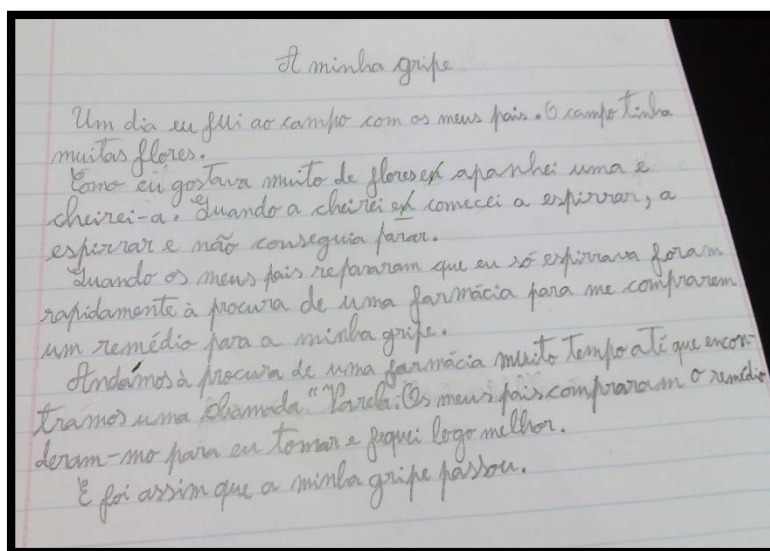 A minha gripe
Um dia eu fui ao campo com os meus pais. O campo tinha
muitas flores.
Como eu gostava muito de flores apanhei uma e
cheirei-a. Quando a cheirei comecei a espirrar, a
espirrar e não conseguia parar.
Quando os meus pais repararam que eu só espirrava foram
rapidamente à procura de uma farmácia para me comprarem
um remédio para a minha gripe.
Andámos à procura de uma farmácia muito tempo até que encon-
tramos uma chamada "Varela. Os meus pais compraram o remédio
deram-mo para eu tomar e fiquei logo melhor.
E foi assim que a minha gripe passou.